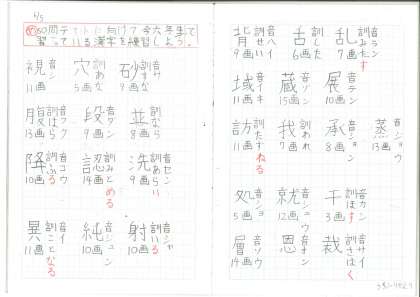 4/5
め 50問テストに向けて今六年生で
習っている漢字を練習しよう。
砂 訓すな 9画
穴 訓あな 5画
視 音シ 11画
並 訓なら 8画
段 音ダン 9画
腹 音フク 訓はら 13画
洗 音セン 訓あらい 9画
認 訓みとめる 14画
降 音コウ 訓ふる 10画
射 音シャ 訓いる 10画
純 音ジュン 10画
異 音イ 訓ことなる 11画
乱 音ラン 訓みだす 7画
舌 訓した 6画
背 音ハイ 訓せ 9画
展 音テン 10画
蔵 音ゾウ 15画
域 音イキ 11画
蒸 音ジョウ 13画
承 音ショウ 8画
我 訓われ 7画
訪 訓たずねる 11画
干 音カン 訓ほす 3画
就 音シュウ 12画
処 音ショ 5画
裁 音サイ 訓さばく 12画
恩 音オン 10画
層 音ソウ 14画